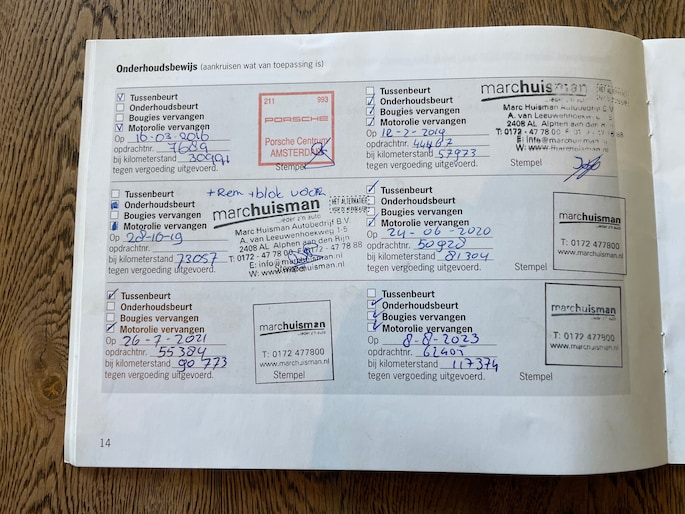 Onderhoudsbewijs (aankruisen wat van toepassing is)
Tussenbeurt
Onderhoudsbeurt
Bougies vervangen
Motorolie vervangen
Op 16-03-2016
opdrachtnr. 7689
bij kilometerstand
tegen vergoeding uitgevoerd.
211 993
PORSCHE
Porsche Centrum
AMSTERDAM
Stempel
Tussenbeurt
Onderhoudsbeurt
Bougies vervangen
Motorolie vervangen
Op 18-2-2019
opdrachtnr. 44467
bij kilometerstand 57973
tegen vergoeding uitgevoerd.
marchuisman
Marc Huisman Autobedrijf B.V.
A. van Leeuwenhoekweg
2408 AL Alphen aan den Rijn
T: 0172 - 47 78 00
E: info@marchuisman.nl
W: www.marchuisman.nl
Stempel
Tussenbeurt
Onderhoudsbeurt
Bougies vervangen
Motorolie vervangen
Op 28-10-19
opdrachtnr.
bij kilometerstand 73057
tegen vergoeding uitgevoerd.
+Rem +blok voor
HET ALTERNATIEF
marchuisman
...ieder z'n auto
Marc Huisman Autobedrijf B.V.
A. van Leeuwenhoekweg 1-5
2408 AL Alphen aan den Rijn
T: 0172 - 47 78 00 F: 0172 - 47 78 88
E: info@marchuisman.nl
W: www.marchuisman.nl
Tussenbeurt
Onderhoudsbeurt
Bougies vervangen
Motorolie vervangen
Op 24-06-2020
opdrachtnr. 50928
bij kilometerstand 81304
tegen vergoeding uitgevoerd.
marchuisman
...ieder z'n auto
T: 0172 477800
www.marchuisman.nl
Stempel
Tussenbeurt
Onderhoudsbeurt
Bougies vervangen
Motorolie vervangen
Op 26-7-2021
opdrachtnr. 55384
bij kilometerstand 90 773
tegen vergoeding uitgevoerd.
marchuisman
...ieder z'n auto
T: 0172 477800
www.marchuisman.nl
Stempel
Tussenbeurt
Onderhoudsbeurt
Bougies vervangen
Motorolie vervangen
Op 8-8-2023
opdrachtnr. 62401
bij kilometerstand 117374
tegen vergoeding uitgevoerd.
marchuisman
...ieder z'n auto
T: 0172 477800
www.marchuisman.nl
Stempel
14